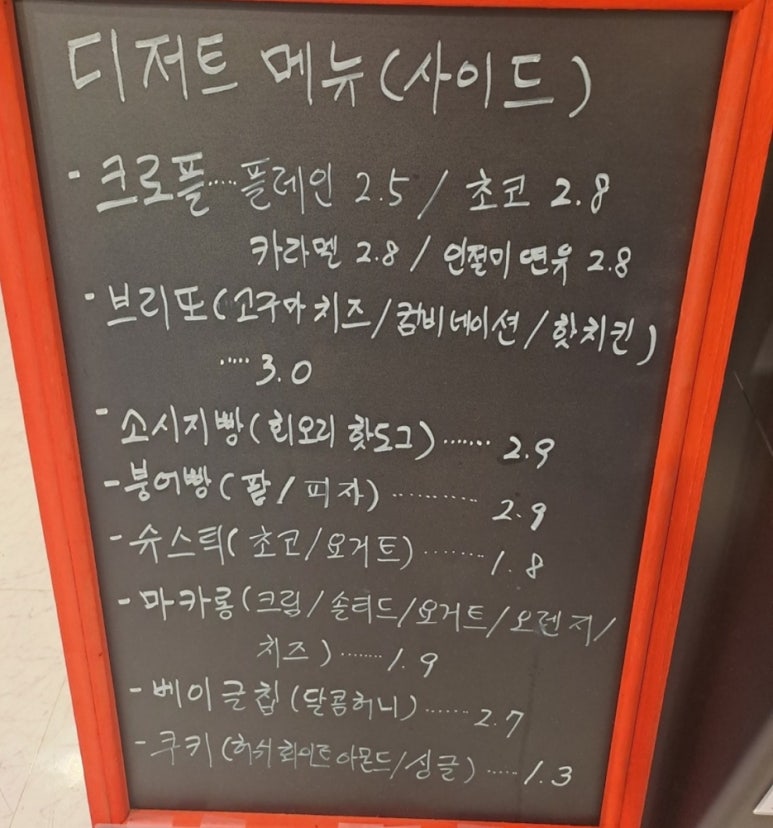 디저트 메뉴(사이드)
- 크로플.... 플레인 2.5 / 초코 2.8
카라멜 2.8 / 인절미연유 2.8
- 브리또(고구마치즈/콤비네이션/핫치킨)
..... 3.0
- 소시지빵(회오리핫도그)...... 2.9
- 붕어빵(팥/피자).......... 2.9
- 슈스틱(초코/요거트)....... 1.8
- 마카롱(크림/솔티드/요거트/오렌지/
치즈)....... 1.9
- 베이글칩(달콤허니)...... 2.7
- 쿠키(허쉬화이트아몬드/싱글)..... 1.3